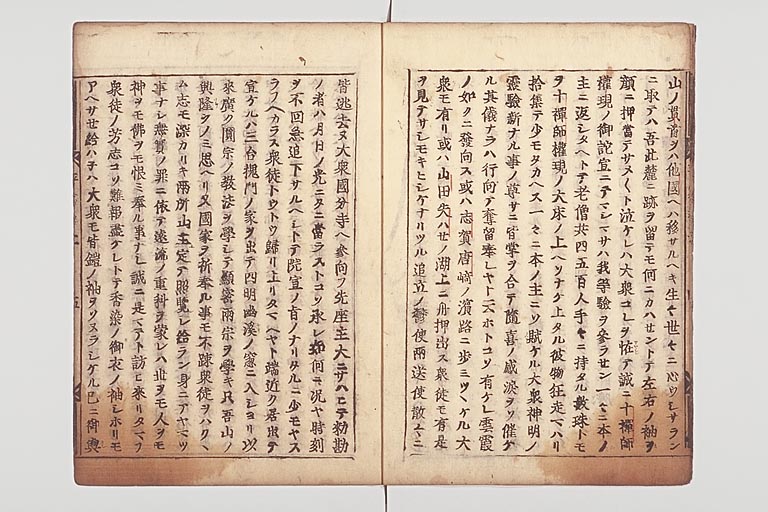 山ノ貫首ヲハ他國ヘハ移サルヘキ生々世々ニ心ウシサラン
ニ取テハ吾此麓ニ跡ヲ留テモ何ニカハセントテ左右ノ袖ヲ
顔ニ押當テサメ〱ト泣ケレハ大衆コレヲ恠テ誠ニ十禪師
權現ノ御詫宣ニテマシマサハ我等驗ヲ參ラセン一々ニ本ノ
主ニ返シタヘトテ老僧共四五百人手々ニ持タル數珠トモ
ヲ十禪師權現ノ大床ノ上ヘソナケ上タル彼物狂走マハリ
拾集テ少モタカヘス一々ニ本ノ主ニソ賦ケル大衆神明ノ
靈驗新ナル事ノ尊サニ皆掌ヲ合テ隨喜ノ感淚ヲソ催ケ
ル其儀ナラハ行向テ奪留奉レヤト云ホトコソ有ケレ雲霞
ノ如クニ發向ス或ハ志賀唐崎ノ濱路ニ歩ミツヽケル大
衆モ有リ或ハ山田矢ハセノ湖上ニ舟押出ス衆徒モ有是
ヲ見テサシモキヒシケナリツル追立ノ欝使兩送使散々ニ
皆逃去ヌ大衆國分寺ヘ參向フ先座主大ニサハヒテ勅勘
ノ者ハ月日ノ光ニタニ當ラストコソ承レ如何ニ況ヤ時刻
ヲ不回急追下サルヘシトテ院宣ノ旨ノナリタルニ少モヤス
ラフヘカラス衆徒トウトウ歸リ上リタマヘヤト端近ク居出テ
宣ケルハ三台槐門ノ家ヲ出テ四明幽溪ノ窓ニ入シヨリ以
來廣ク圓宗ノ敎法ヲ學シテ顯密兩宗ヲ學キ只吾山ノ
興隆ヲノミ思ヘリ又國家ヲ祈奉ル事モ不踈衆徒ヲハクヽ
ム志モ深カリキ兩所山王定テ照覽シ給ラン身ニアヤマツ
事ナシ無實ノ罪ニ依テ遠流ノ重科ヲ蒙レハ世ヲモ人ヲモ
神ヲモ佛ヲモ恨ミ奉ル事ナシ誠ニ是マテト訪ヒ來リタマフ
衆徒ノ芳志コソ難報盡ケレトテ香染ノ御衣ノ袖シホリモ
アヘサセ給ハネハ大衆モ皆鎧ノ袖ヲソヌラシケル已ニ御輿